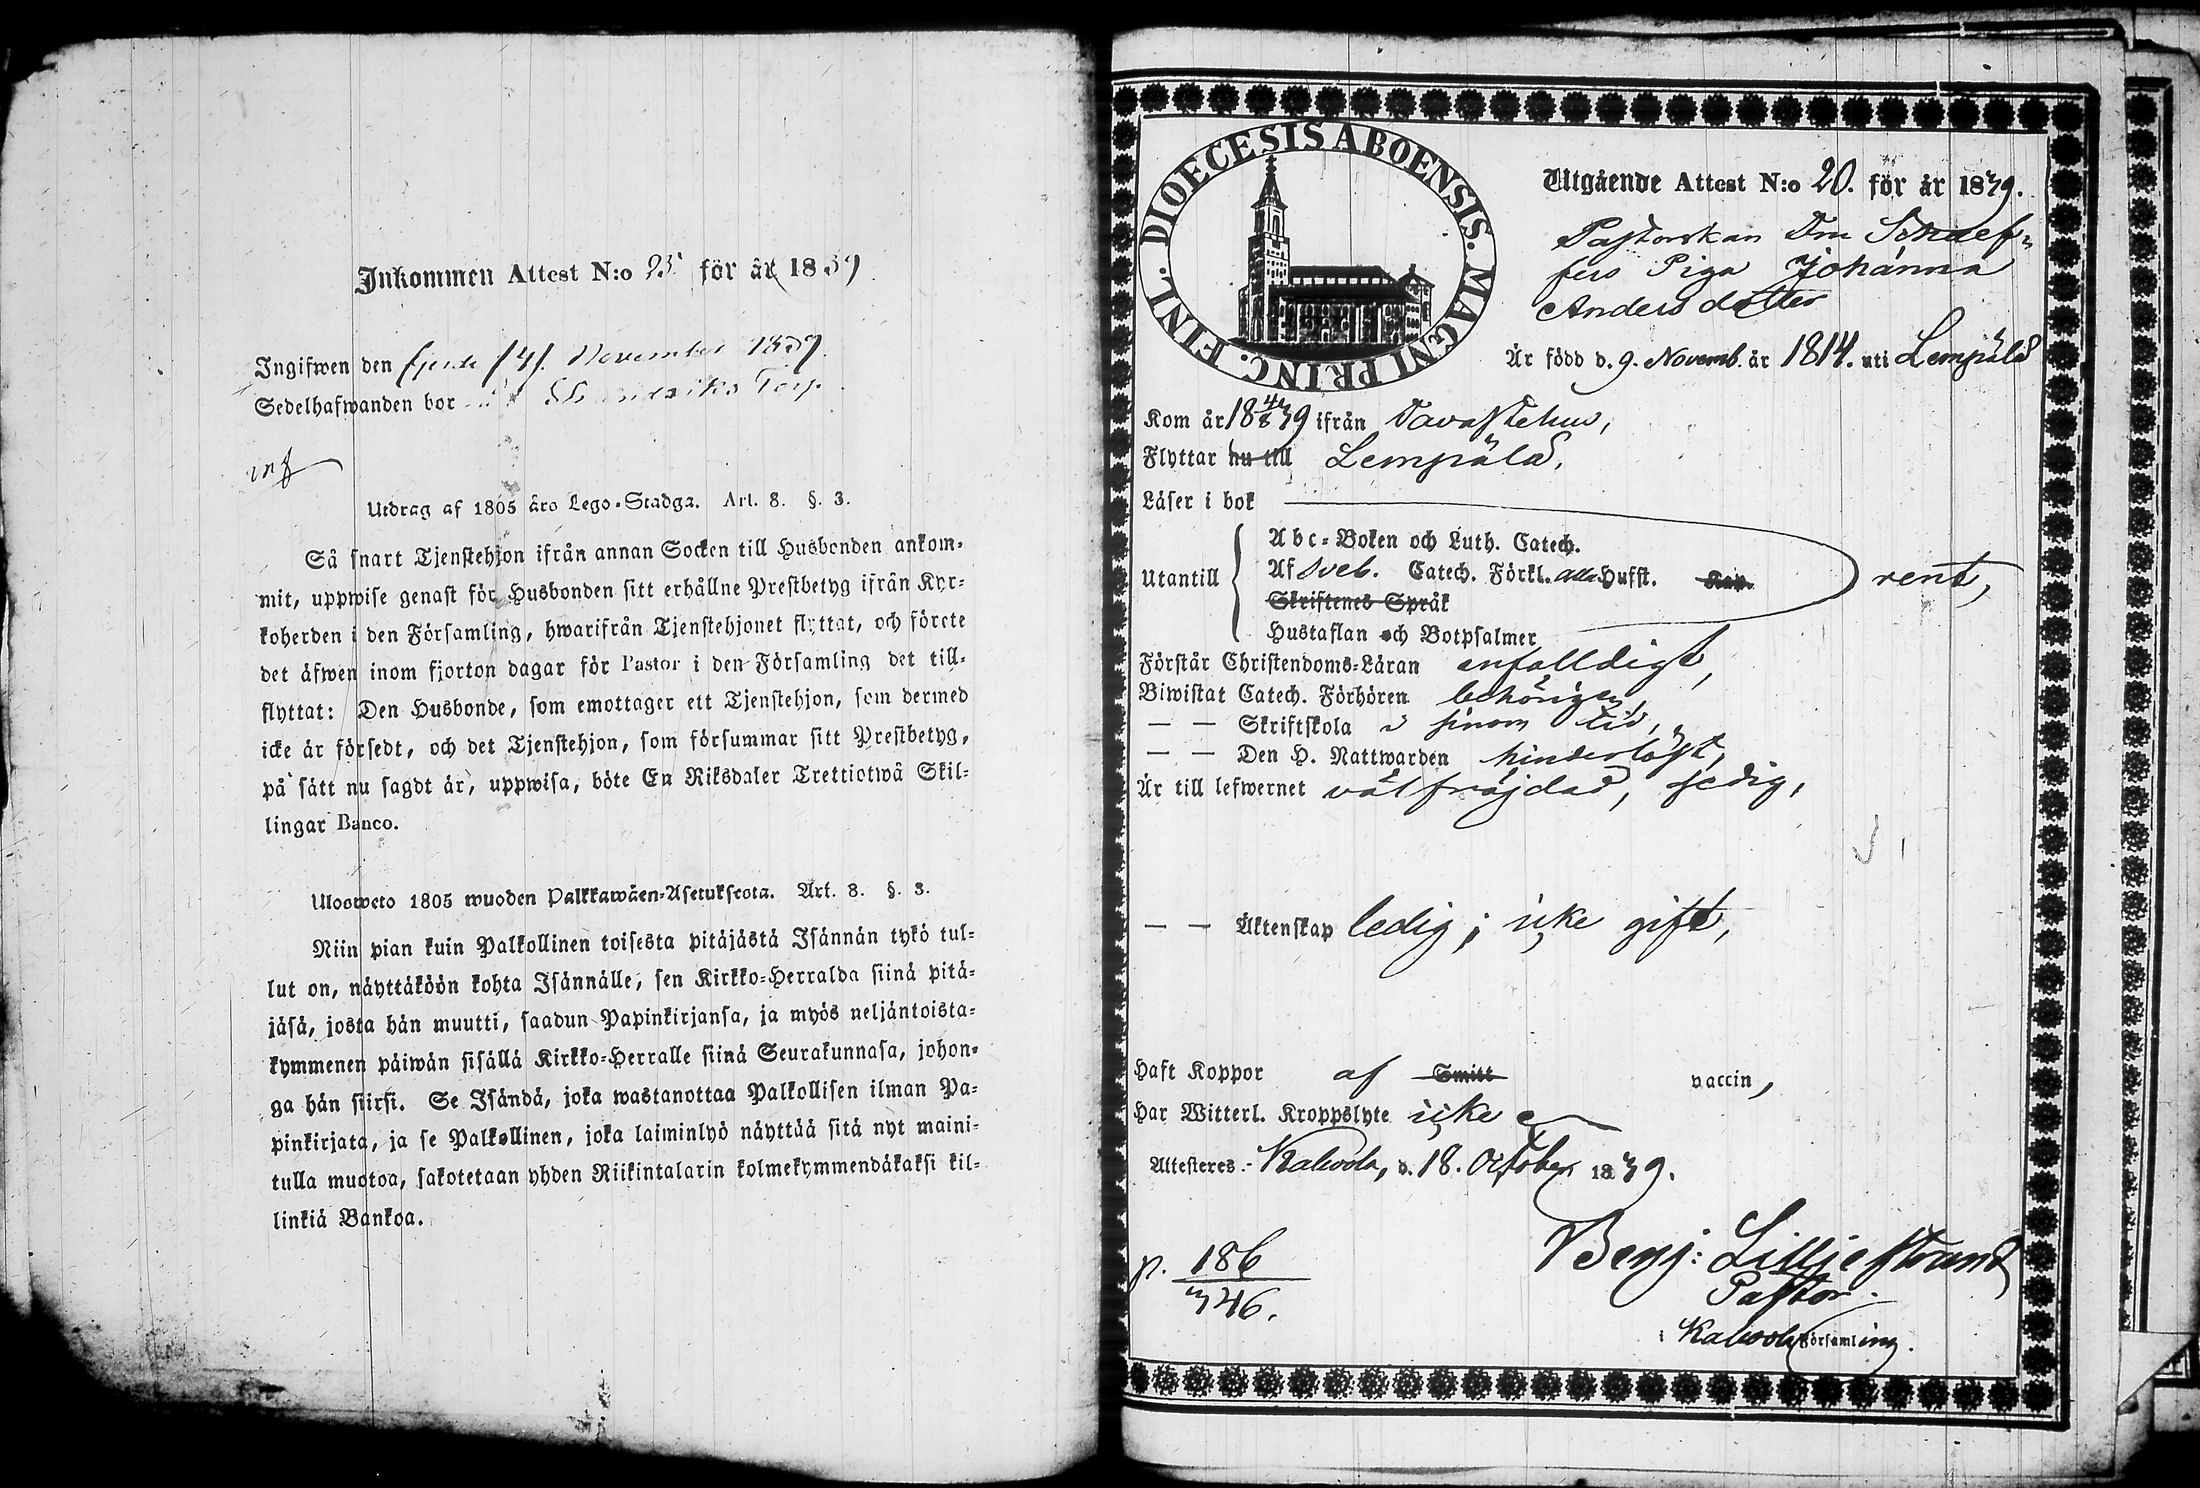 Inkommen Attest N:o 25 för år 1839
Ingifwen den fjerde /4/. November 1839
Sedelhafwanden bor Torp.
Utdrag af 1805 åro Lego-Stadga. Art. 8. §. 3.
Så snart Tjenstehjon ifrån annan Socken till Husbonden ankom-
mit, uppwise genast för Husbonden sitt erhållne Prestbetyg ifrån Kyr-
koherden i den Församling, hwarifrån Tjenstehjonet flyttat, och förete
det äfwen inom fjorton dagar för Pastor i den Församling det till-
flyttat: Den Husbonde, som emottager ett Tjenstehjon, som dermed
icke är försedt, och det Tjenstehjon, som försummar sitt Prestbetyg,
på sätt nu sagdt är, uppwisa, böte En Riksdaler Trettiotwå Skil-
lingar Banco.
Ulosweto 1805 wuoden Palkkawäen-Asetuksesta. Art. 8. §. 3.
Niin pian kuin Palkollinen toisesta pitäjästä Isännän tykö tul-
lut on, näyttäköön kohta Isännälle, sen Kirkko-Herralda siinä pitä-
jäsä, josta hän muutti, saadun Papinkirjansa, ja myös neljäntoista-
kymmenen päiwän sisällä Kirkko-Herralle siinä Seurakunnasa, johon-
ga hän siirsi. Se Isändä, joka wastanottaa Palkollisen ilman Pa-
pinkirjata, ja se Palkollinen, joka laiminlyö näyttää sitä nyt maini-
tulla muotoa, sakotetaan yhden Riikintalarin kolmekymmendäkaksi kil-
linkiä Bankoa.
FINL. DIOECESIS ABOENSIS. MAGNI PRINC.
Utgående Attest N:o 20. för år 1839.
Pastorskan Fru Schaef-
fers Piga Johanna
Andersdotter
Är född d. 9. Novemb. år 1814. uti Lempälä
Kom år 18 4/8 39 ifrån Tavastehus,
Flyttar nu till Lempälä.
Läser i bok
Utantill
Abc-Boken och Luth. Catech.
Af Sveb. Catech. Förkl. alla Hufst. Kap.
Skriftenes Språk
Hustaflan och Botpsalmer
rent,
Förstår Christendoms-Läran enfalldigt,
Biwistat Catech. Förhören behörigen,
— — Skriftskola i sinom tid,
— — Den H. Nattwarden hinderlöst,
Är till lefwernet välfräjdad, sedig,
— — Äktenskap ledig; icke gift,
Haft Koppor af Smitt vaccin,
Har Witterl. Kroppslyte icke
Attesteres.- Kalvola, d. 18. October 1839.
Benj: Lilljestrand
Pastor.
i Kalvola Församling.
p. 186
346.